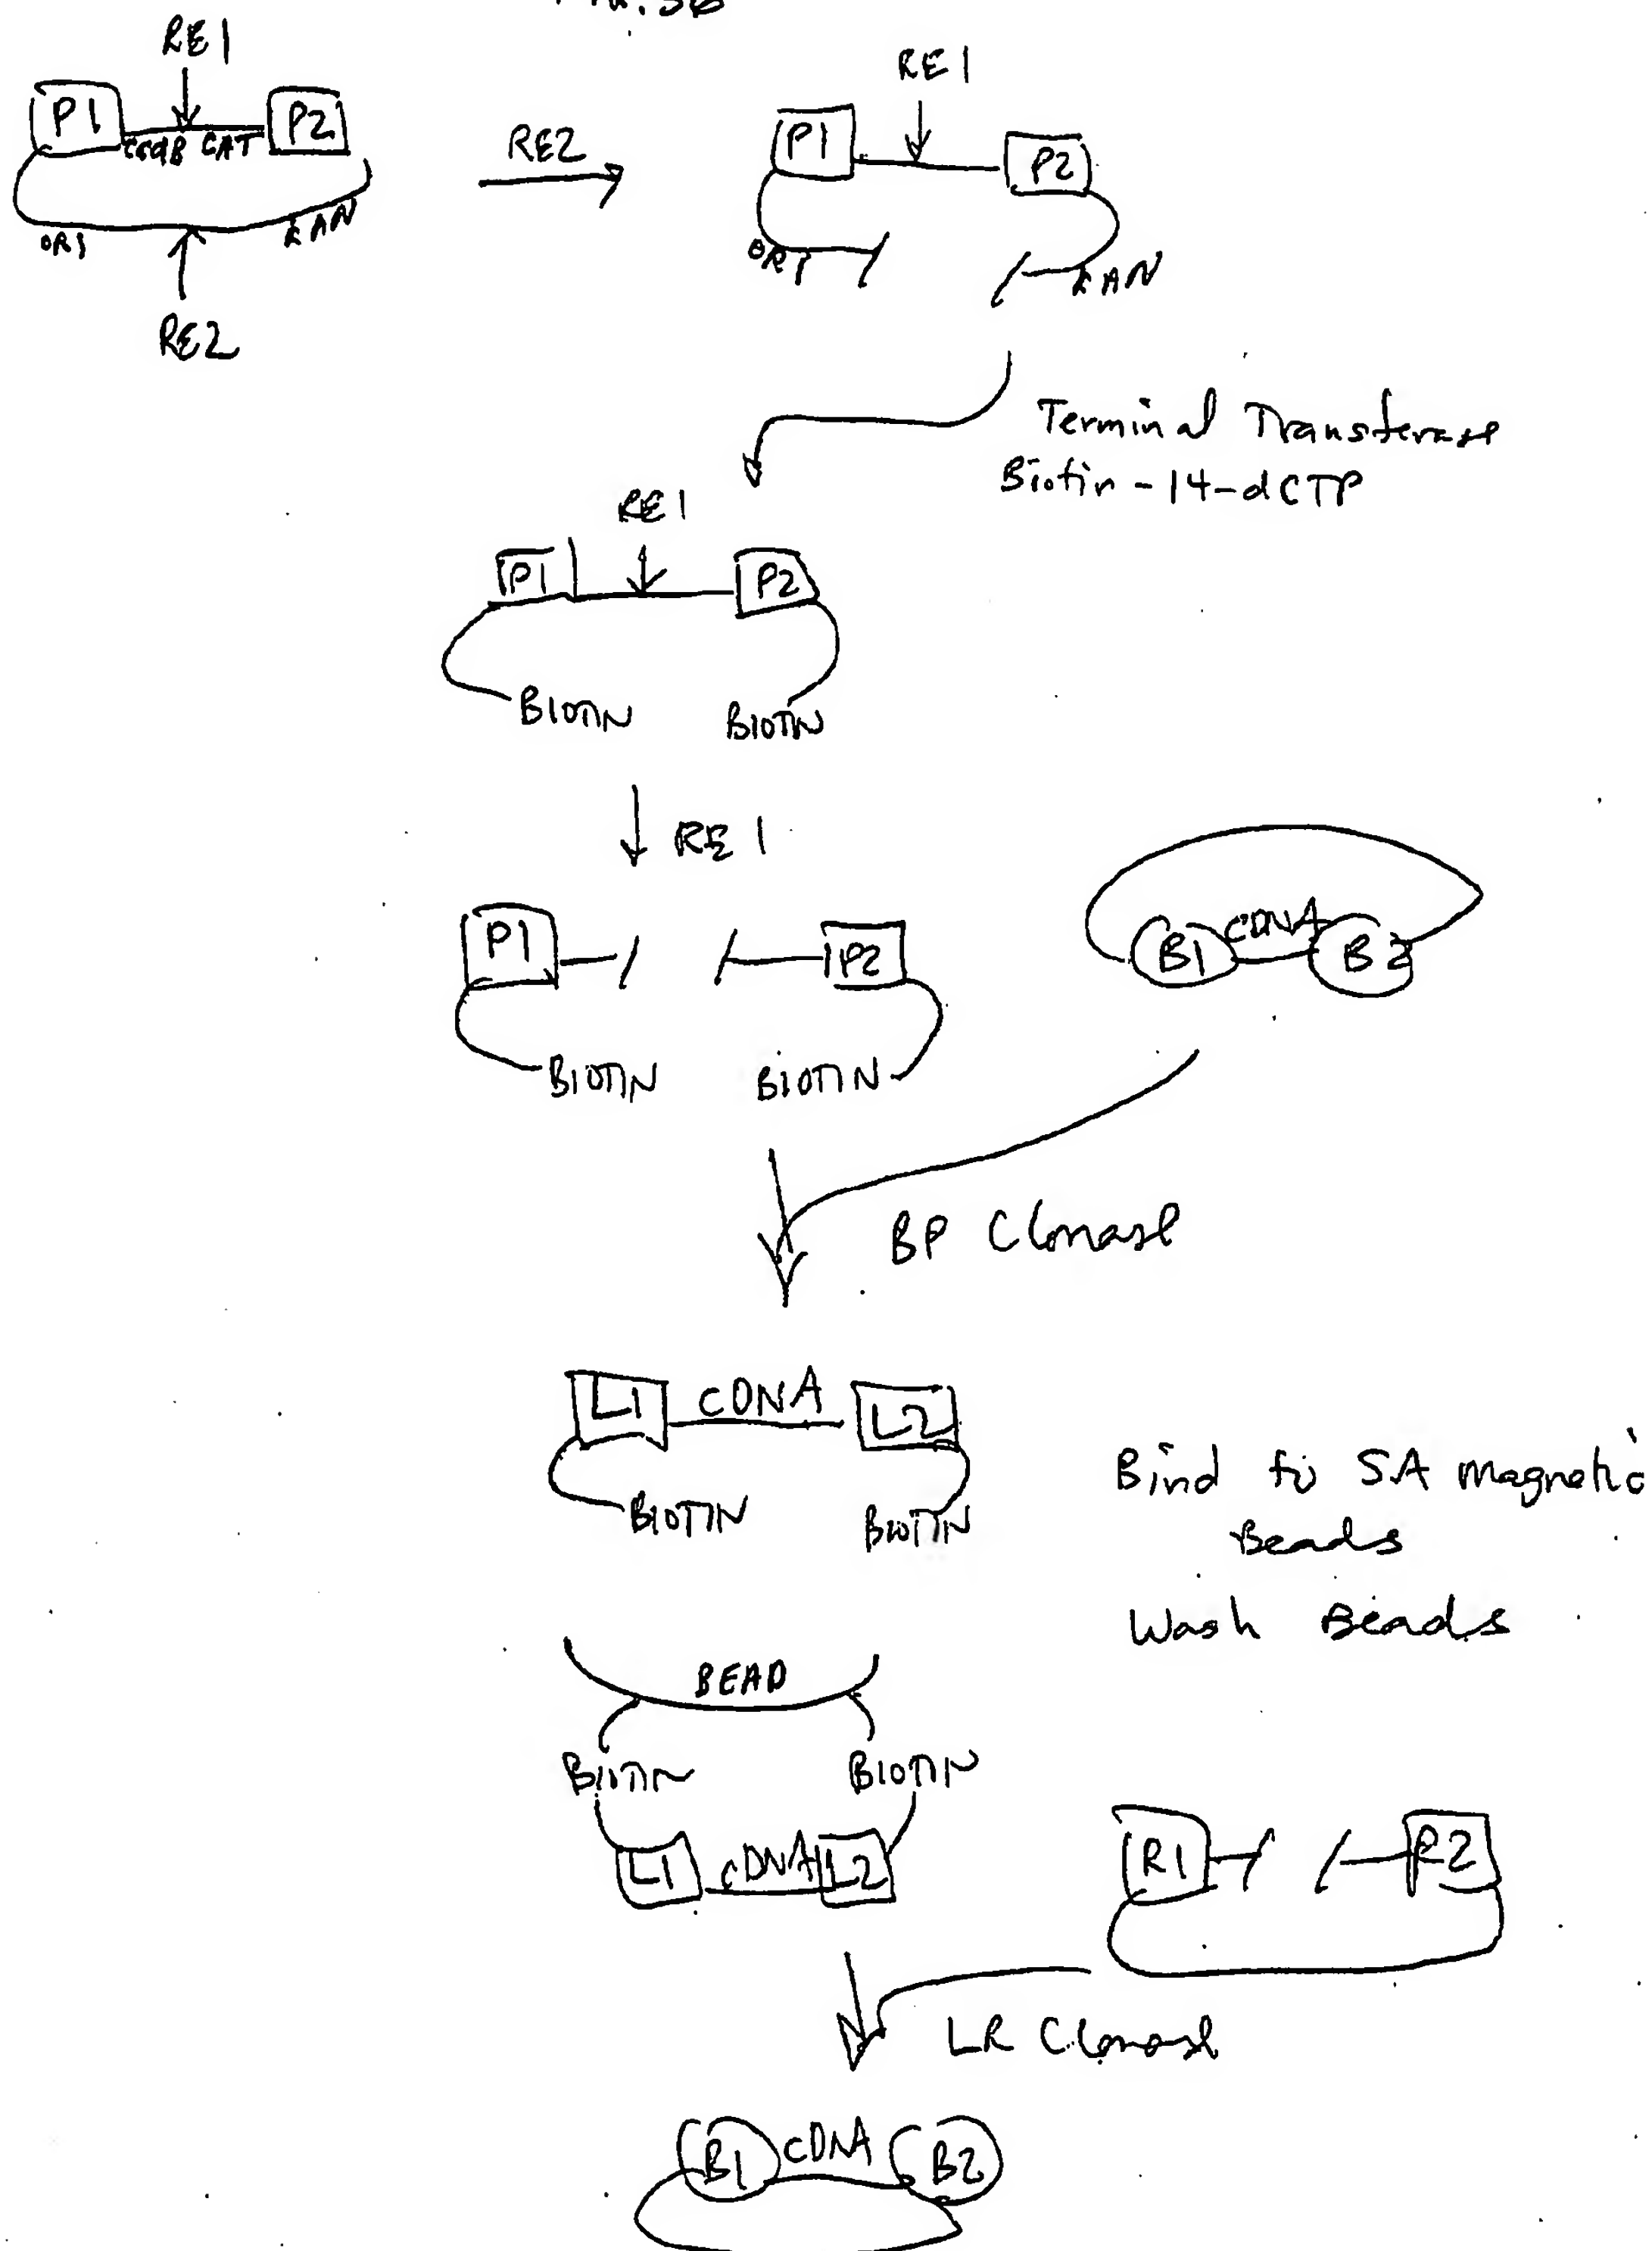 RE1
P1
P2
ccdB CAT
ORI
KAN
RE2
RE2
RE1
P1
P2
ORI
KAN
Terminal Transferase
Biotin-14-dCTP
RE1
P1
P2
BIOTIN BIOTIN
RE1
P1
P2
BIOTIN BIOTIN
B1 cDNA B2
BP Clonase
L1 cDNA L2
BIOTIN BIOTIN
Bind to SA magnetic
Beads
Wash Beads
BEAD
BIOTIN BIOTIN
L1 cDNA L2
R1 R2
LR Clonase
B1 cDNA B2